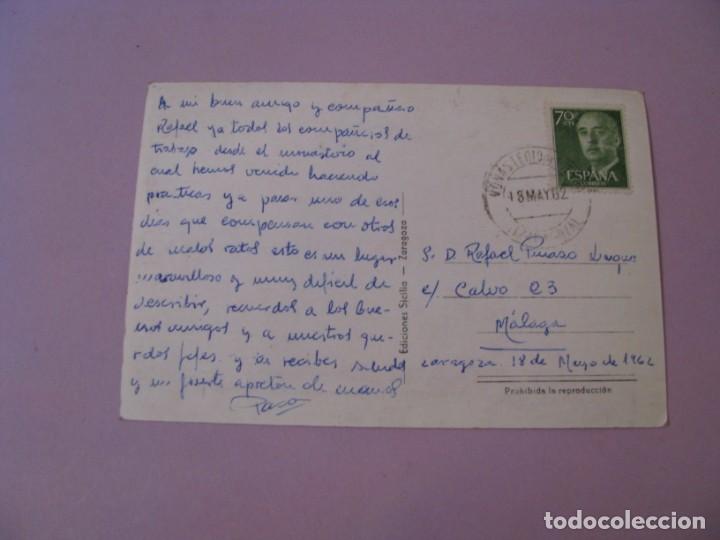 A mi buen amigo y compañero
Rafael y a todos los compañeros de
trabajo desde el monasterio al
cual hemos venido haciendo
practicas y a pasar uno de esos
dias que compensan con otros
de malos ratos esto es un lugar
maravilloso y muy dificil de
describir, recuerdos a los bue-
nos amigos y a nuestros que-
ridos jefes. y recibes saludos
y un fuerte apretón de manos
Paco
Ediciones Sicilia — Zaragoza
70 CTS
ESPAÑA
CORREOS
18 MAY 62
S. D. Rafael
c/ Calvo 23
Málaga
Zaragoza 18 de Mayo de 1962
Prohibida la reproducción
todocoleccion
todocoleccion.net